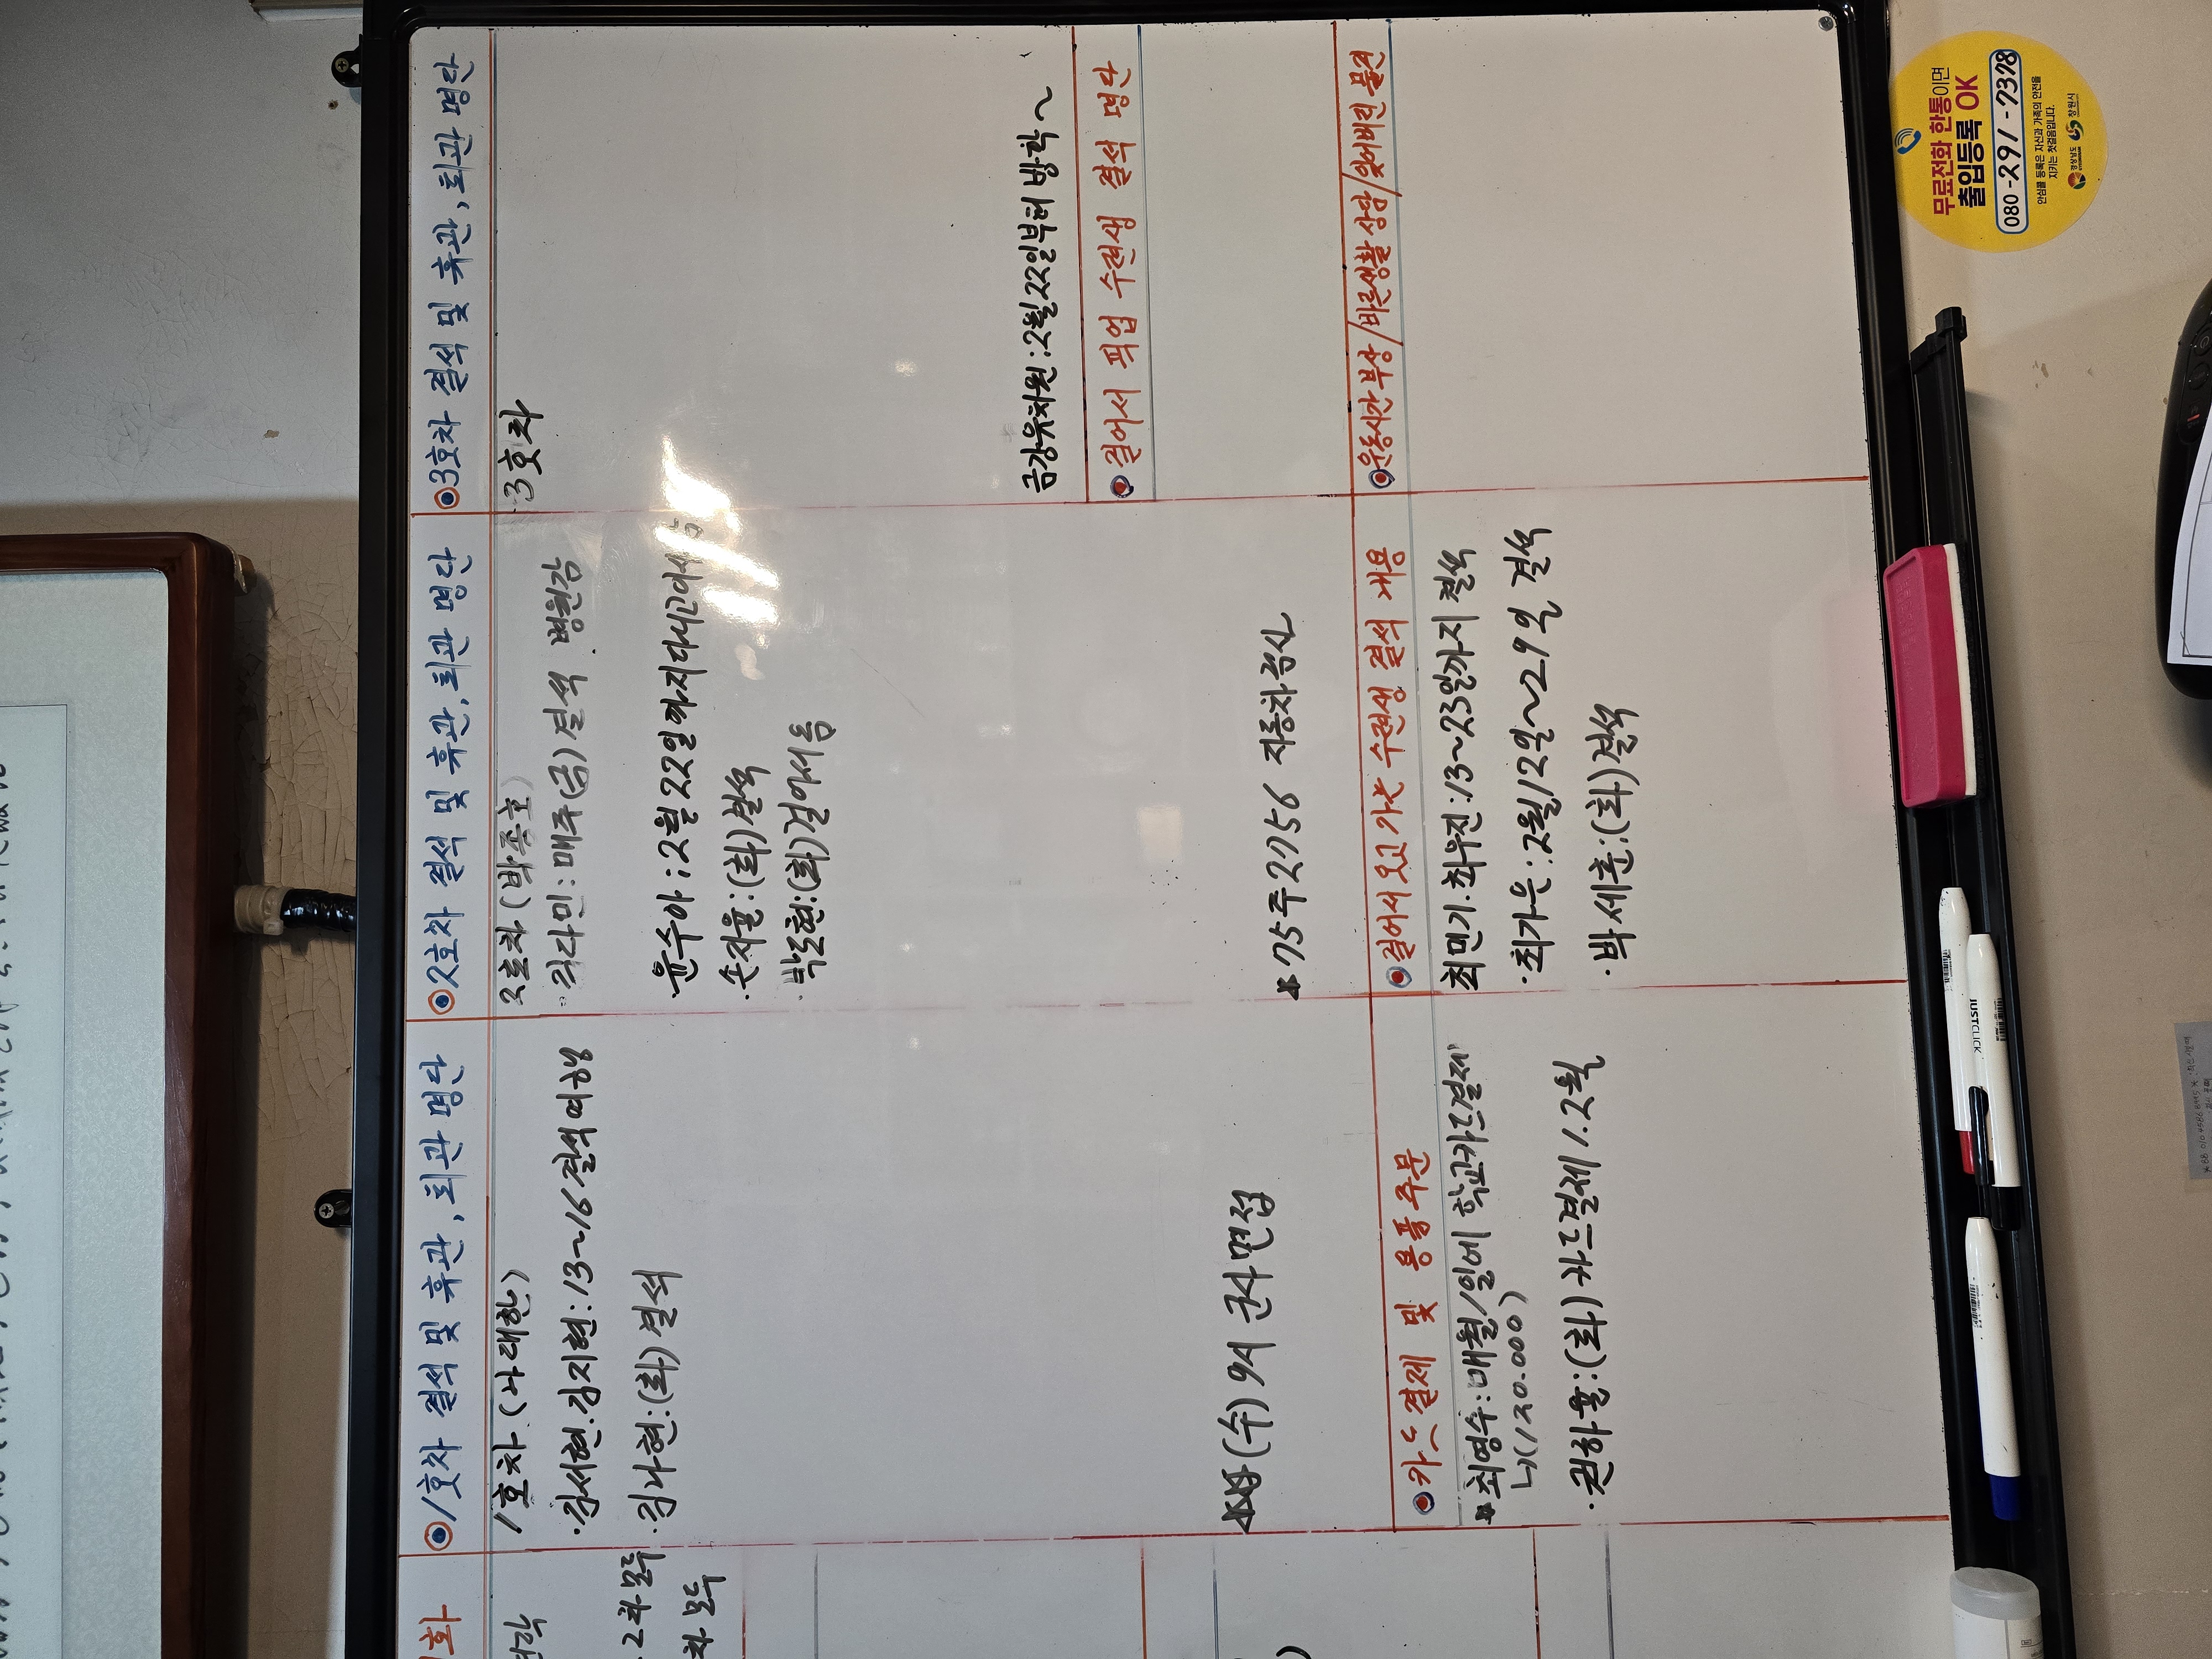 ◉1호차 결석 및 휴관, 퇴관 명단
1호차 (나대한)
·김서현.김지현:13~16결석여행
·김나현:(화)결석
(수)9시 군사면접
◉카드결제 및 용품주문
*최영수:매월1일에 학교카드결제
ㄴ(130.000)
·권하율:(화)카드결제1.2월
◉2호차 결석 및 휴관, 퇴관 명단
2호차(박종호)
매주(금)결석 병원감
·윤수아:2월22일까지다니고이사
·손지율:(화)결석
·박도현:(화)걸어서옴
*75주2756 자동차검사
◉걸어서오고가는 수련생 결석 내용
최민기.최우진:13~23일까지 결석
·최가은:2월12일~29일 결석
·박세훈:(화)결석
◉3호차 결석 및 휴관, 퇴관 명단
3호차
금강유치원:2월22일부터 방학~
◉걸어서 픽업 수련생 결석 명단
◉운동시간부상/바른생활상담/잊어버린물건
2차모두
차모두
무료전화 한통이면
출입등록 OK
080-291-7378
안심콜 등록은 자신과 가족의 안전을
지키는 첫걸음입니다.
경상남도 창원시
JUSTCLICK